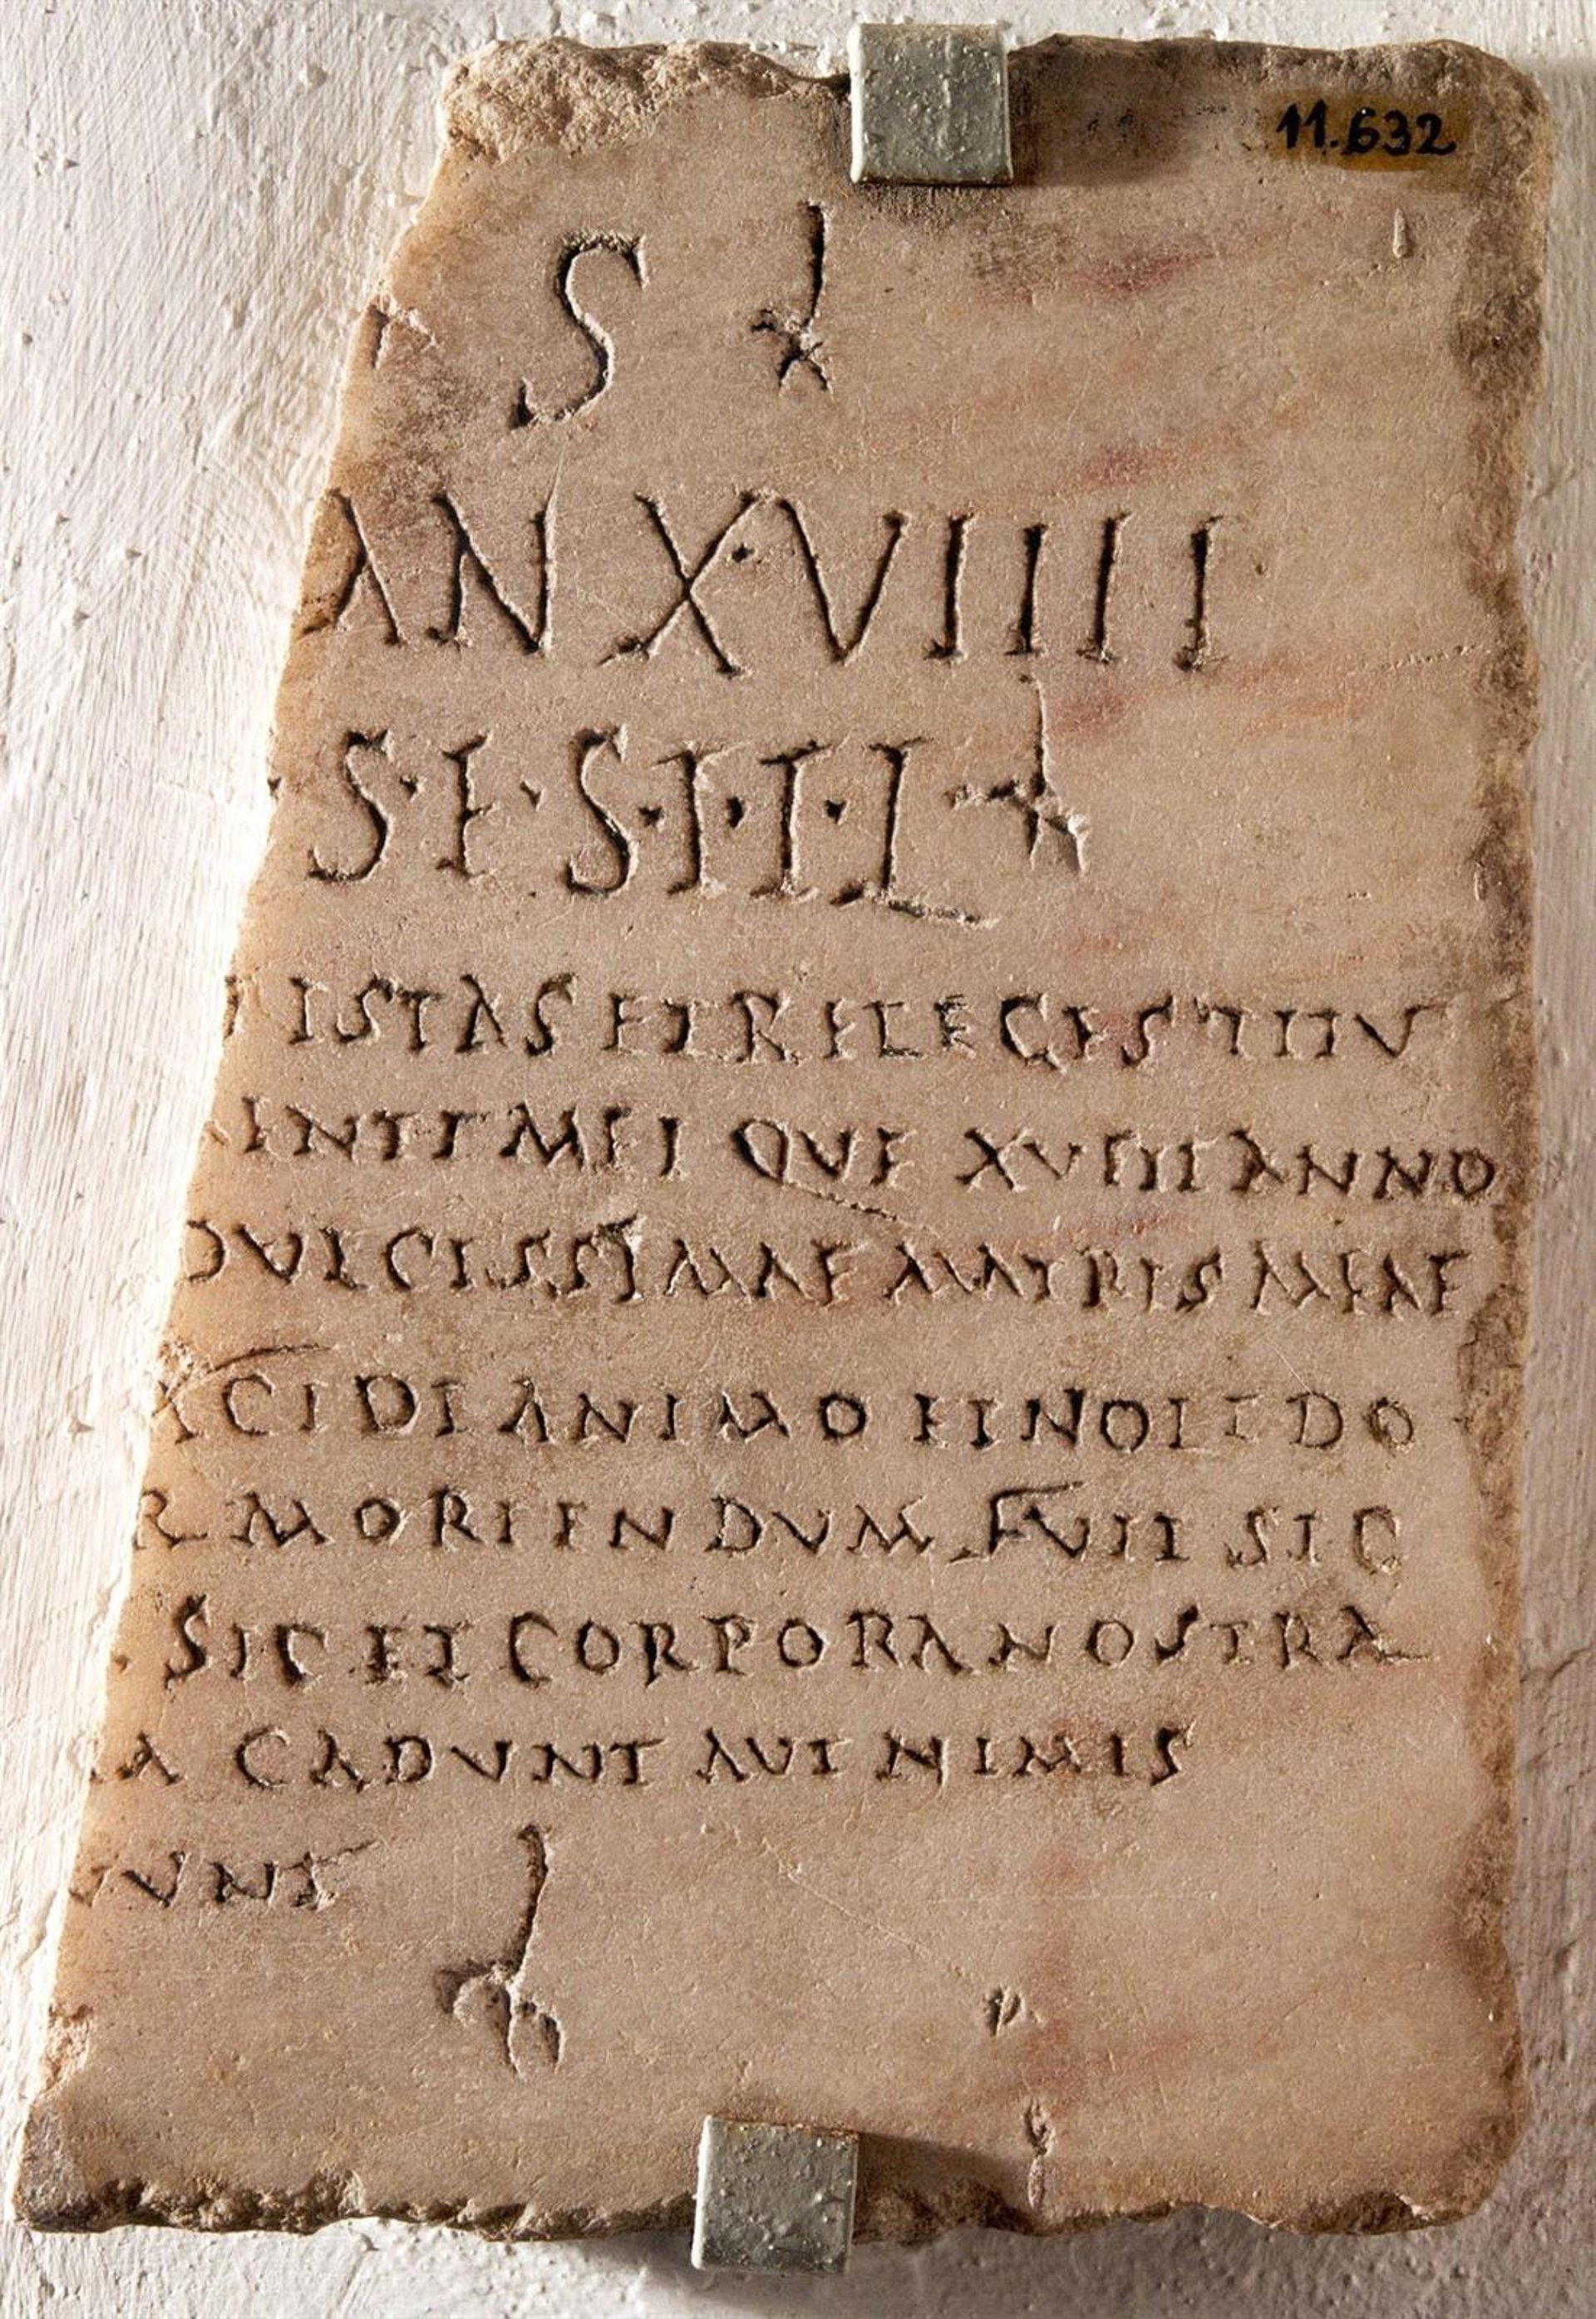 11.632
S
AN XVIIII
S·E·S·T·T·L
ISTAS ET RELEGES TITV
ENTI MEI QUE XVIIII ANNO
DULCISSIMAE MATRIS MEAE
XCIDI ANIMO ET NOLI DO
R MORIENDUM FUIT SIC
SIC ET CORPORA NOSTRA
A CADUNT AUT NIMIS
UNT